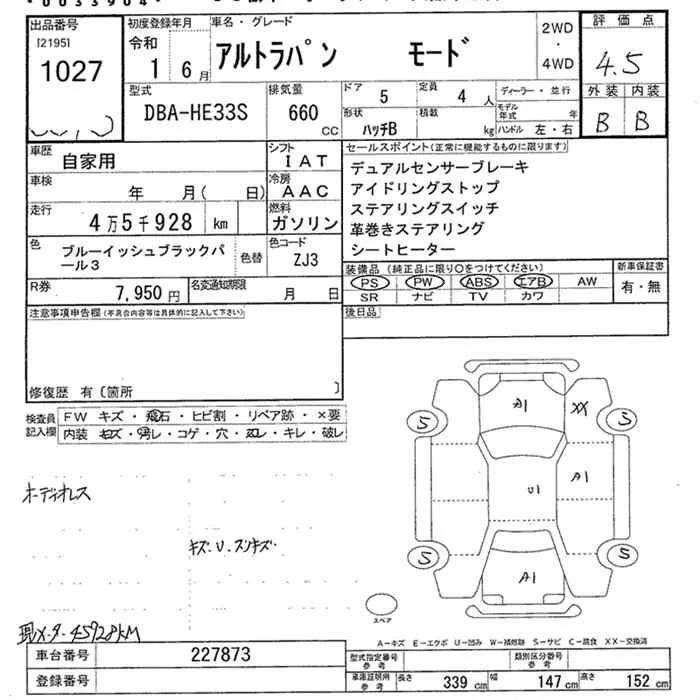 *0033904*
出品番号
[2195]
1027
初度登録年月
令和
1 6月
車名・グレード
アルトラパン モード
2WD
・
4WD
評価点
4.5
外装 内装
B B
型式
DBA-HE33S
排気量
660 CC
ドア 5
定員 4 人
形状 ハッチB
積載 kg
ディーラー・並行
モデル年式 年
ハンドル 左・右
車歴 自家用
シフト IAT
車検 年 月( 日)
冷房 AAC
走行 4万5千928 km
燃料 ガソリン
色 ブルーイッシュブラックパール3
色替
色コード ZJ3
R券 7,950円
名変通知期限 月 日
セールスポイント(正常に機能するものに限ります)
デュアルセンサーブレーキ
アイドリングストップ
ステアリングスイッチ
革巻きステアリング
シートヒーター
装備品(純正品に限り○をつけてください)
PS PW ABS エアB AW
SR ナビ TV カワ
新車保証書
有・無
後日品
注意事項申告欄(不具合内容等は具体的に記入して下さい)
修復歴 有〔箇所 〕
検査員記入欄
FW キズ・飛石・ヒビ割・リペア跡・×要
内装 キズ・汚レ・コゲ・穴・スレ・キレ・破レ
オーディオレス
キズ・U・スリキズ・
現メーター45928KM
A1
XX
5
3
U1
A1
5
5
A1
スペア
A-キズ E-エクボ U-凹み W-補修跡 S-サビ C-腐食 XX-交換済
車台番号 227873
登録番号
型式指定番号 参考
類別区分番号 参考
車庫証明用 参考
長さ 339 cm
幅 147 cm
高さ 152 cm